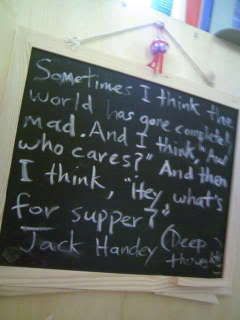 Sometimes I think the
world has gone completely
mad. And I think, "And
who cares?" And then
I think, "Hey, what's
for supper?"
Jack Handey (Deep
thoughts)